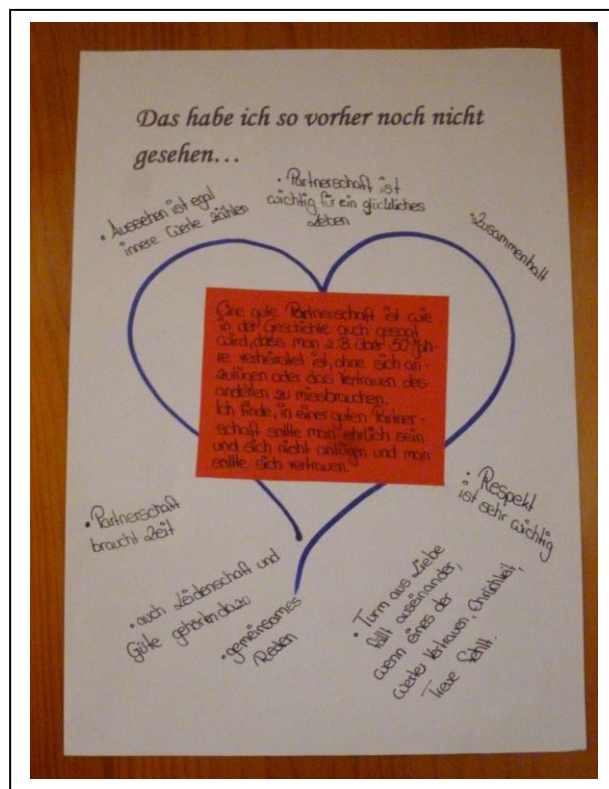 Das habe ich so vorher noch nicht
gesehen...
• Aussehen ist egal
innere Werte zählen
• Partnerschaft ist
wichtig für ein glückliches
Leben
• Zusammenhalt
Eine gute Partnerschaft ist wie
in der Geschichte auch gesagt
wird, dass man z.B. über 50 Jah-
re verheiratet ist, ohne sich an-
zulügen oder das Vertrauen des
anderen zu missbrauchen.
Ich finde, in einer guten Partner-
schaft sollte man ehrlich sein
und sich nicht anlügen und man
sollte sich vertrauen.
• Partnerschaft
braucht Zeit
• Respekt
ist sehr wichtig
• auch Leidenschaft und
Güte gehören dazu
• gemeinsames
Reden
• Turm aus Liebe
fällt auseinander,
wenn eines der
Werte Vertrauen, Ehrlichkeit,
Treue fehlt.